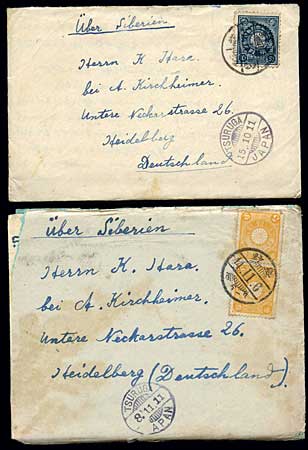 Über Siberien
Herrn K Hara.
bei A. Kirchheimer.
Untere Neckarstrasse 26.
Heidelberg
Deutschland
TSURUGA
15.10.11
JAPAN
Über Siberien
Herrn K. Hara.
bei A. Kirchheimer.
Untere Neckarstrasse 26.
Heidelberg (Deutschland).
TSURUGA
8.11.11
JAPAN